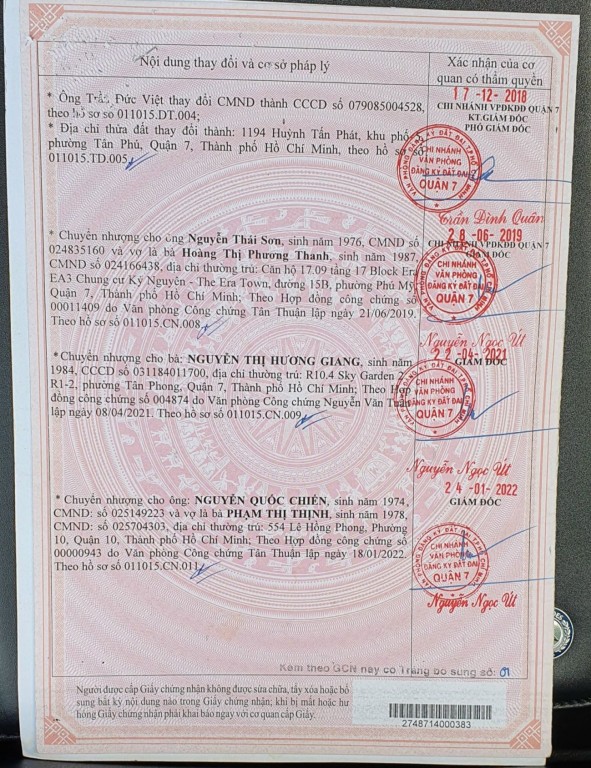 Nội dung thay đổi và cơ sở pháp lý
Xác nhận của cơ
quan có thẩm quyền
* Ông Trần Đức Việt thay đổi CMND thành CCCD số 079085004528,
theo hồ sơ số 011015.DT.004;
* Địa chỉ thửa đất thay đổi thành: 1194 Huỳnh Tấn Phát, khu phố
phường Tân Phú, Quận 7, Thành phố Hồ Chí Minh, theo hồ sơ số
011015.TD.005
17 -12- 2018
CHI NHÁNH VPĐKĐĐ QUẬN 7
KT.GIÁM ĐỐC
PHÓ GIÁM ĐỐC
VĂN PHÒNG ĐĂNG KÝ ĐẤT ĐAI
CHI NHÁNH
VĂN PHÒNG
ĐĂNG KÝ ĐẤT ĐAI
QUẬN 7
Trần Đình Quân
* Chuyển nhượng cho ông Nguyễn Thái Sơn, sinh năm 1976, CMND số
024835160 và vợ là bà Hoàng Thị Phương Thanh, sinh năm 1987,
CMND số 024166438, địa chỉ thường trú: Căn hộ 17.09 tầng 17 Block En
EA3 Chung cư Kỷ Nguyên - The Era Town, đường 15B, phường Phú Mỹ
Quận 7, Thành phố Hồ Chí Minh; Theo Hợp đồng công chứng số
00011409 do Văn phòng Công chứng Tân Thuận lập ngày 21/06/2019.
Theo hồ sơ số 011015.CN.008
28 -06- 2019
CHI NHÁNH VPĐKĐĐ QUẬN 7
GIÁM ĐỐC
CHI NHÁNH
VĂN PHÒNG
ĐĂNG KÝ ĐẤT ĐAI
QUẬN 7
Nguyễn Ngọc Út
* Chuyển nhượng cho bà: NGUYỄN THỊ HƯƠNG GIANG, sinh năm
1984, CCCD số 031184011700, địa chỉ thường trú: R10.4 Sky Garden 2-
R1-2, phường Tân Phong, Quận 7, Thành phố Hồ Chí Minh; Theo Hợp
đồng công chứng số 004874 do Văn phòng Công chứng Nguyễn Văn Tuấn
lập ngày 08/04/2021. Theo hồ sơ số 011015.CN.009
22 -04- 2021
GIÁM ĐỐC
CHI NHÁNH
VĂN PHÒNG
ĐĂNG KÝ ĐẤT ĐAI
QUẬN 7
Nguyễn Ngọc Út
* Chuyển nhượng cho ông: NGUYỄN QUỐC CHIẾN, sinh năm 1974,
CMND: số 025149223 và vợ là bà PHẠM THỊ THỊNH, sinh năm 1978,
CMND: số 025704303, địa chỉ thường trú: 554 Lê Hồng Phong, Phường
10, Quận 10, Thành phố Hồ Chí Minh; Theo Hợp đồng công chứng số
00000943 do Văn phòng Công chứng Tân Thuận lập ngày 18/01/2022.
Theo hồ sơ số 011015.CN.011
24 -01- 2022
GIÁM ĐỐC
VĂN PHÒNG ĐĂNG KÝ ĐẤT ĐAI
CHI NHÁNH
VĂN PHÒNG
ĐĂNG KÝ ĐẤT ĐAI
QUẬN 7
Nguyễn Ngọc Út
Kèm theo GCN này có Trang bổ sung số: 01
Người được cấp Giấy chứng nhận không được sửa chữa, tẩy xóa hoặc bổ
sung bất kỳ nội dung nào trong Giấy chứng nhận; khi bị mất hoặc hư
hỏng Giấy chứng nhận phải khai báo ngay với cơ quan cấp Giấy.
2748714000383